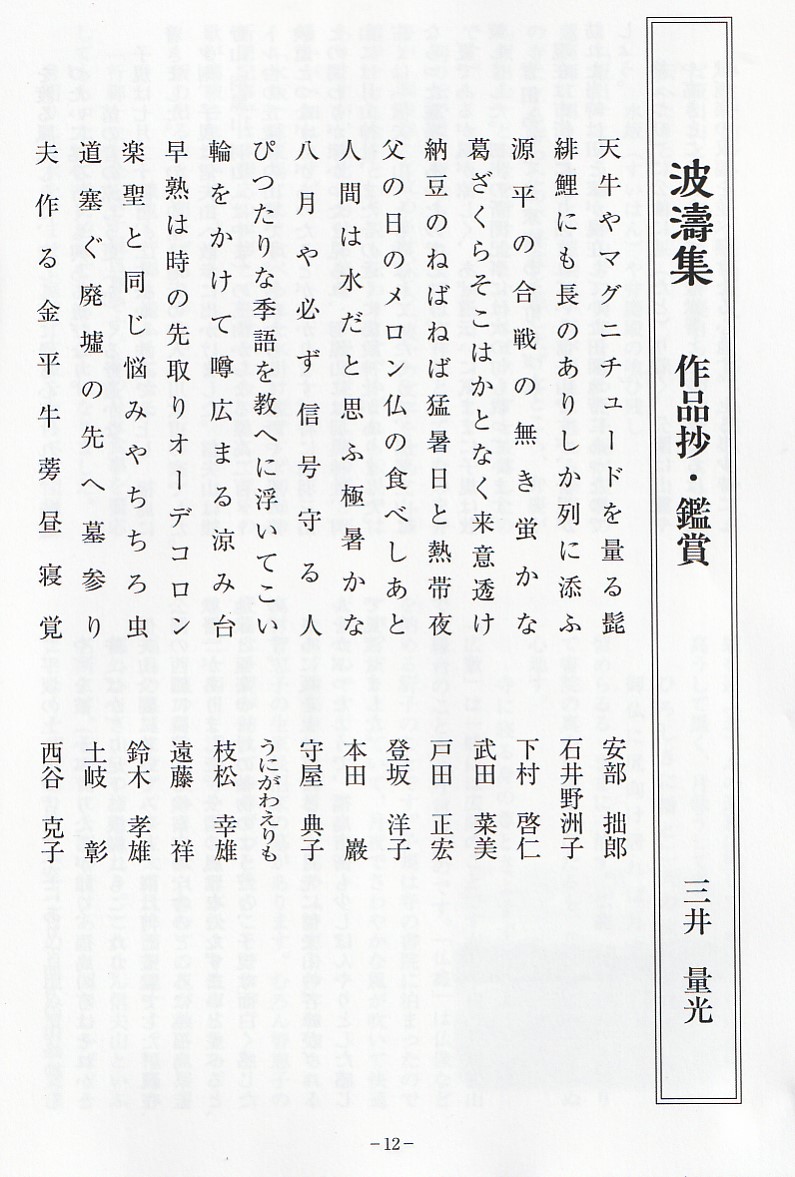 波濤集　作品抄・鑑賞　三井　量光
天牛やマグニチュードを量る髭　安部　拙郎
緋鯉にも長のありしか列に添ふ　石井野洲子
源平の合戦の無き蛍かな　下村　啓仁
葛ざくらそこはかとなく来意透け　武田　菜美
納豆のねばねば猛暑日と熱帯夜　戸田　正宏
父の日のメロン仏の食べしあと　登坂　洋子
人間は水だと思ふ極暑かな　本田　巌
八月や必ず信号守る人　守屋　典子
ぴつたりな季語を教へに浮いてこい　うにがわえりも
輪をかけて噂広まる涼み台　枝松　幸雄
早熟は時の先取りオーデコロン　遠藤　祥
楽聖と同じ悩みやちちろ虫　鈴木　孝雄
道塞ぐ廃墟の先へ墓参り　土岐　彰
夫作る金平牛蒡昼寝覚　西谷　克子
-12-